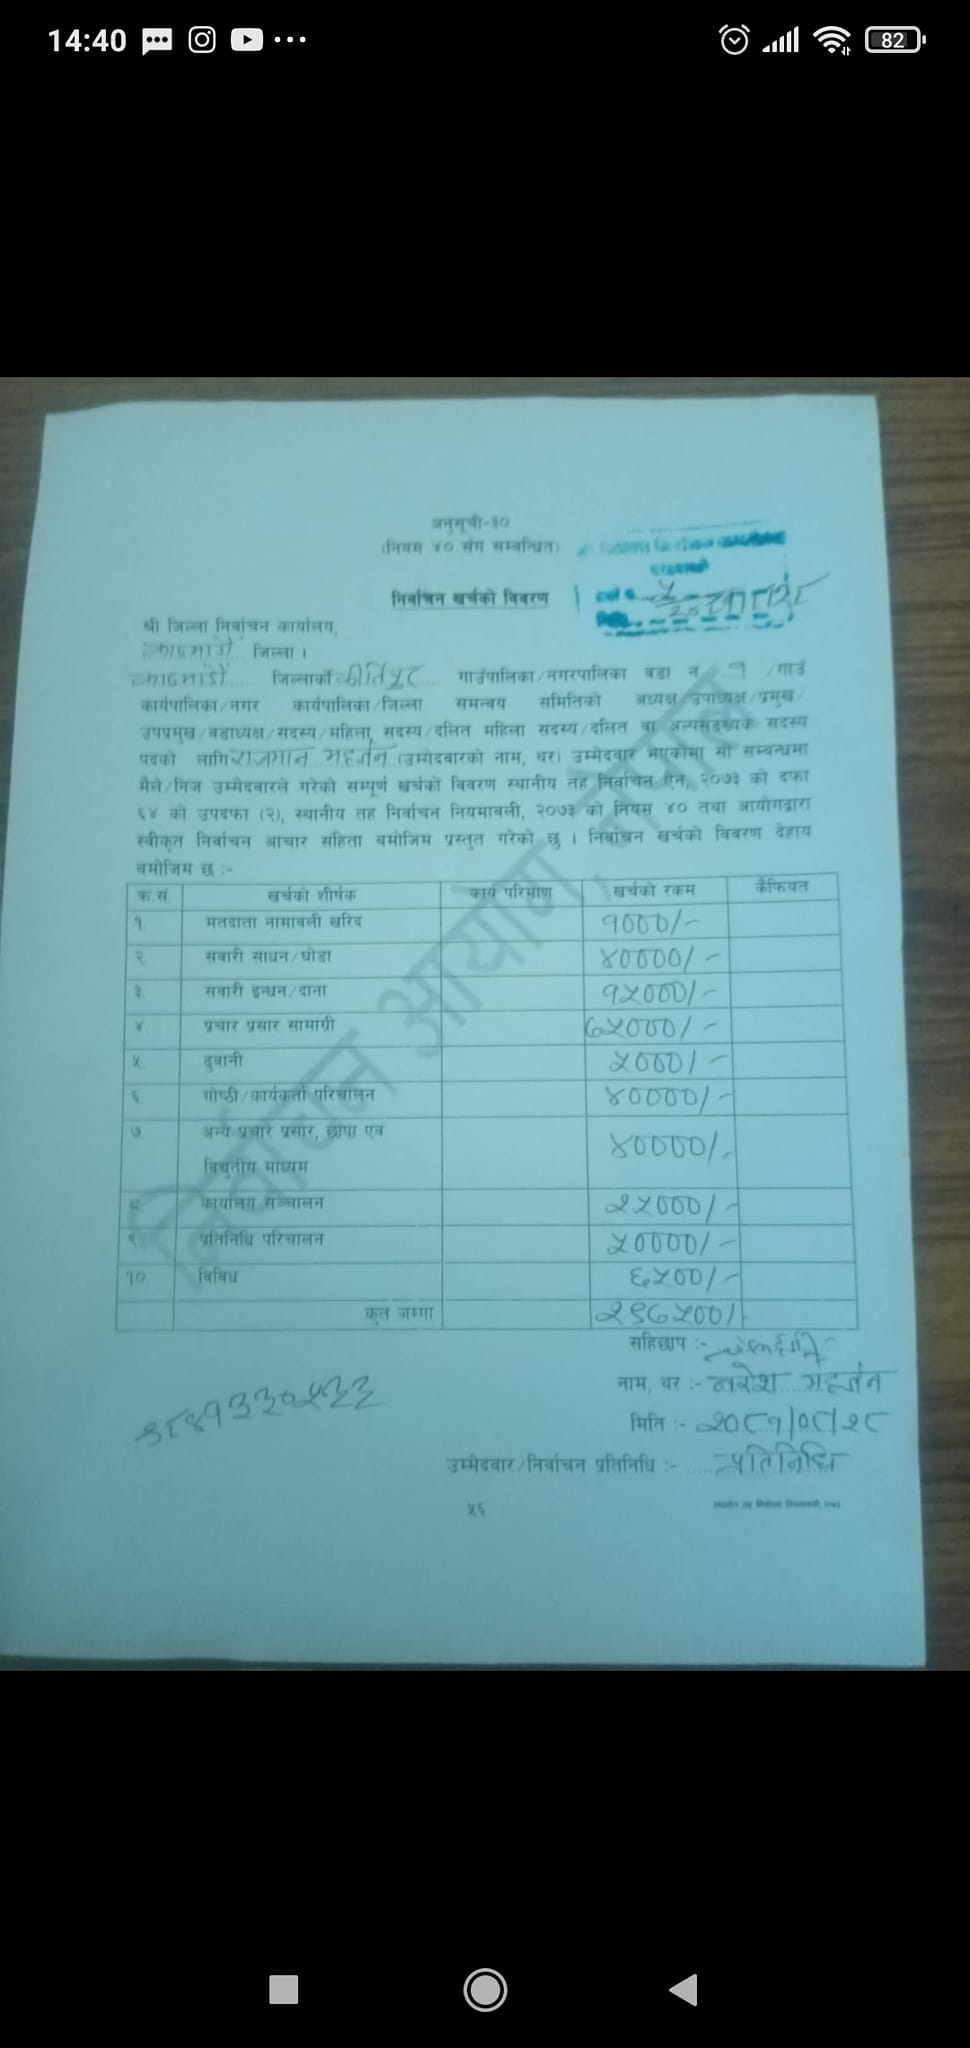 14:40
82
अनुसूची-३०
(नियम ४० संग सम्बन्धित)
निर्वाचन खर्चको विवरण
श्री जिल्ला निर्वाचन कार्यालय,
काठमाडौं जिल्ला ।
काठमाडौं जिल्लाको कीर्तिपुर गाउँपालिका/नगरपालिका वडा नं १ /गाउँ
कार्यपालिका/नगर कार्यपालिका/जिल्ला समन्वय समितिको अध्यक्ष/उपाध्यक्ष/प्रमुख/
उपप्रमुख/वडाध्यक्ष/सदस्य/महिला सदस्य/दलित महिला सदस्य/दलित वा अल्पसंख्यक सदस्य
पदको लागि राजमान महर्जन (उम्मेदवारको नाम, थर) उम्मेदवार भएकोमा सो सम्बन्धमा
मैले/निज उम्मेदवारले गरेको सम्पूर्ण खर्चको विवरण स्थानीय तह निर्वाचन ऐन, २०७३ को दफा
६४ को उपदफा (२), स्थानीय तह निर्वाचन नियमावली, २०७३ को नियम ४० तथा आयोगद्वारा
स्वीकृत निर्वाचन आचार संहिता बमोजिम प्रस्तुत गरेको छु । निर्वाचन खर्चको विवरण देहाय
बमोजिम छ :-
क्र.सं. खर्चको शीर्षक कार्य परिमाण खर्चको रकम कैफियत
१. मतदाता नामावली खरिद १०००/-
२. सवारी साधन/घोडा ४००००/-
३. सवारी इन्धन/दाना १५०००/-
४. प्रचार प्रसार सामाग्री ७५०००/-
५. ढुवानी ५०००/-
६. गोष्ठी/कार्यकर्ता परिचालन ४००००/-
७. अन्य प्रचार प्रसार, छापा एवं ४००००/-
विद्युतीय माध्यम
८. कार्यालय सञ्चालन २५०००/-
९. प्रतिनिधि परिचालन ५००००/-
१०. विविध ६५००/-
कुल जम्मा २९७५००/-
सहिछाप :-
नाम, थर :- नरेश महर्जन
मिति :- २०८१/०८/२८
९८४१३३०५३३
उम्मेदवार/निर्वाचन प्रतिनिधि :- प्रतिनिधि
५६
निर्वाचन आयोग, नेपाल